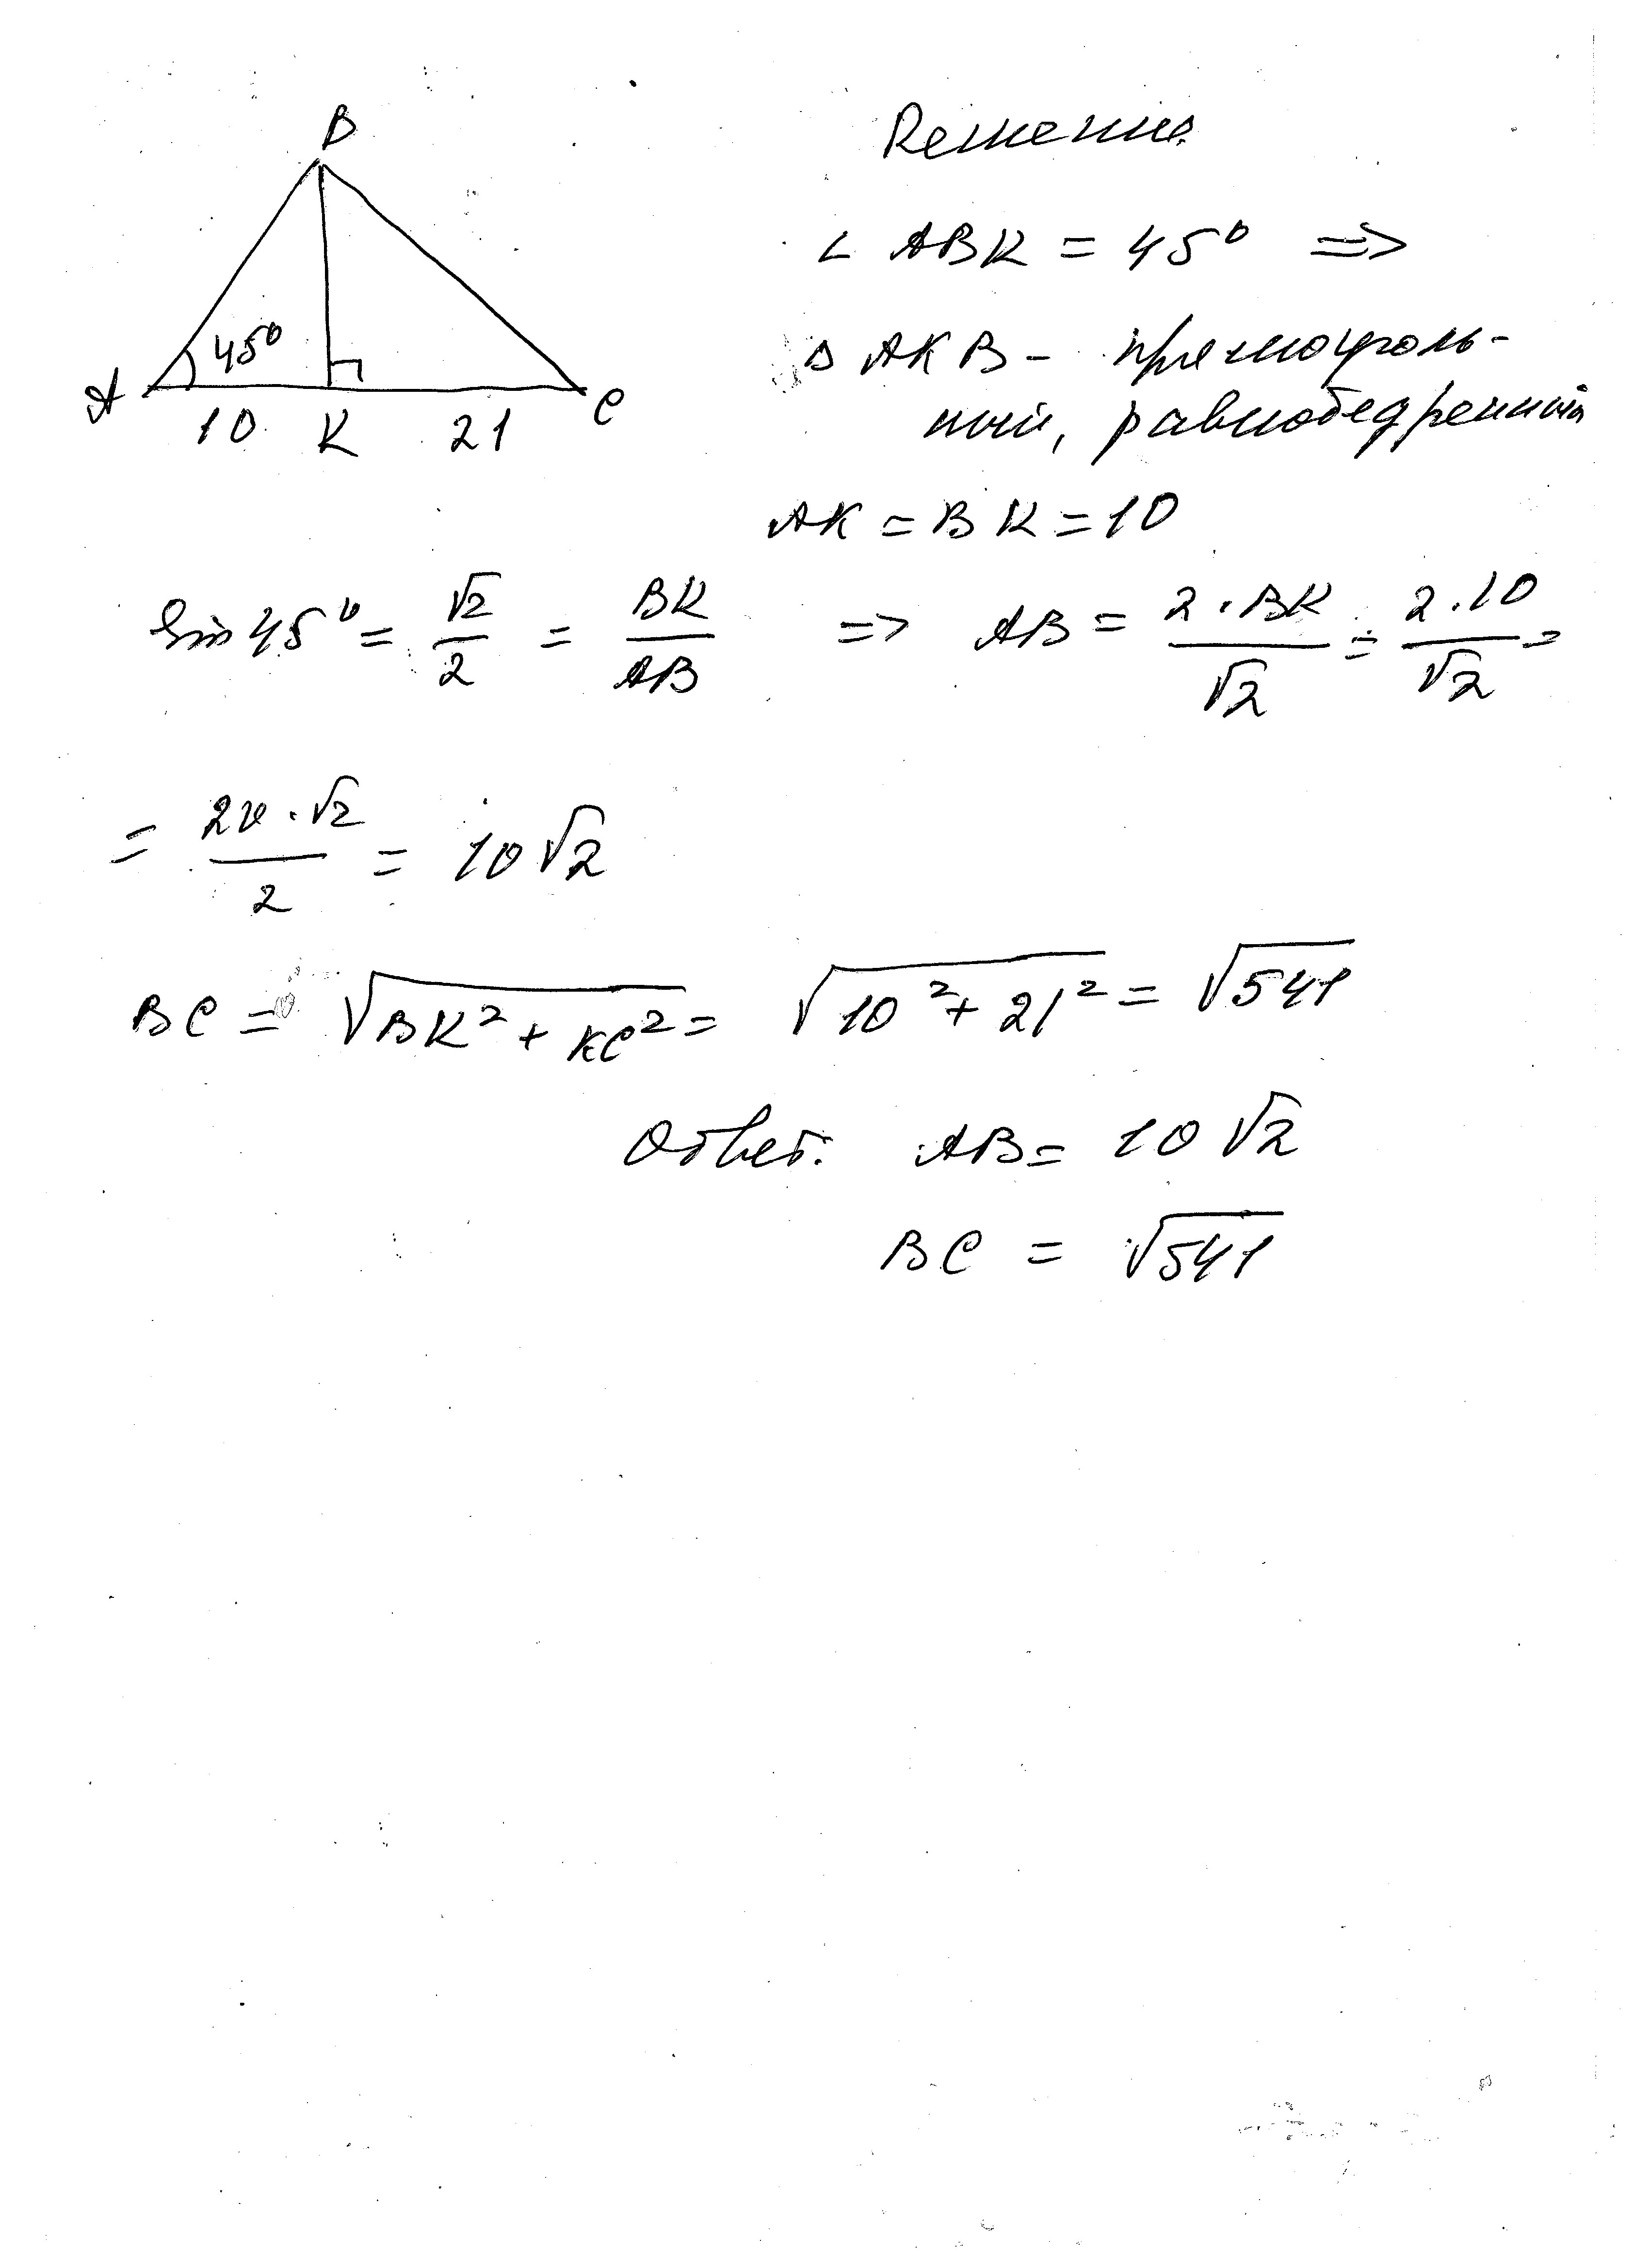 B
45°
A
C
10 K 21
Решение.
∠ ABK = 45° =>
Δ AKB - прямоуголь-
ный, равнобедренный
AK = BK = 10
Sin 45° = √2/2 = BK/AB => AB = 2·BK/√2 = 2·10/√2 =
= 20·√2/2 = 10√2
BC = √BK² + KC² = √10² + 21² = √541
Ответ: AB = 10√2
BC = √541